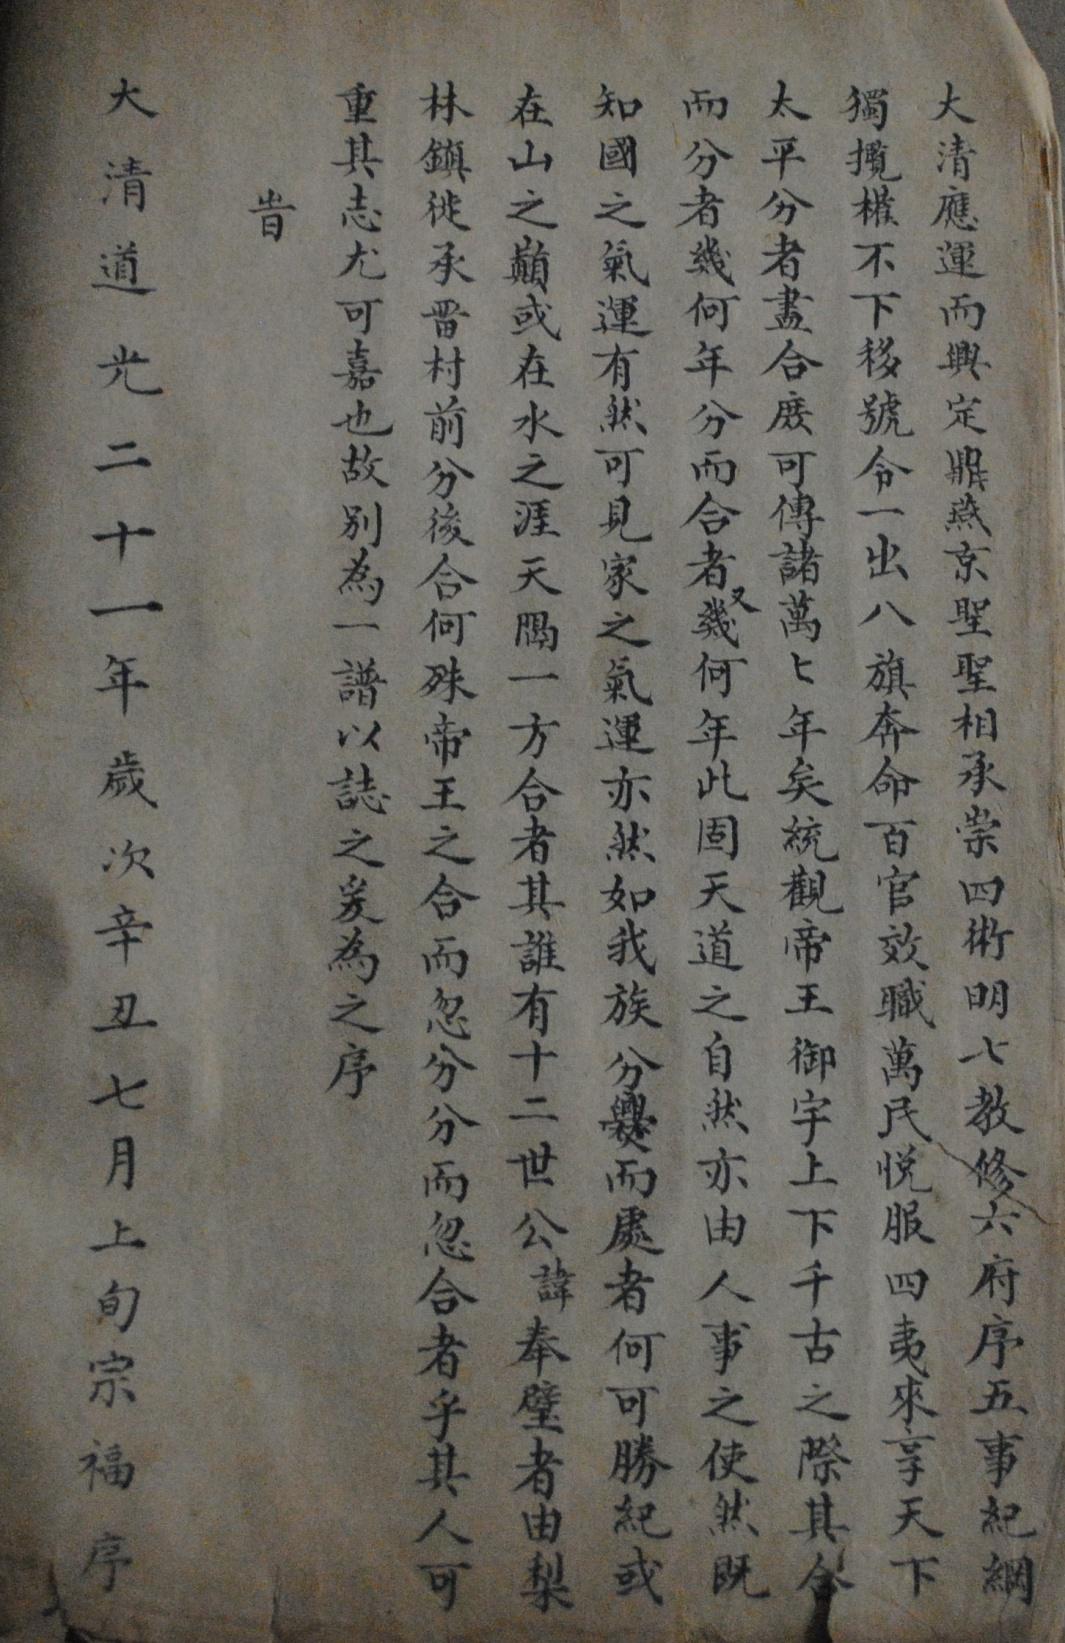 大清應運而興定鼎燕京聖聖相承崇四術明七教修六府序五事紀綱
獨攬權不下移號令一出八旗奔命百官效職萬民悅服四夷來享天下
太平分者盡合庶可傳諸萬七年矣統觀帝王御宇上下千古之際其合
而分者幾何年分而合者又幾何年此固天道之自然亦由人事之使然既
知國之氣運有然可見家之氣運亦然如我族分爨而處者何可勝紀或
在山之巔或在水之涯天隔一方合者其誰有十二世公諱奉璧者由梨
林鎮徙承晋村前分後合何殊帝王之合而忽分分而忽合者乎其人可
重其志尤可嘉也故別為一譜以誌之爰為之序
旹
大清道光二十一年歲次辛丑七月上旬宗福序